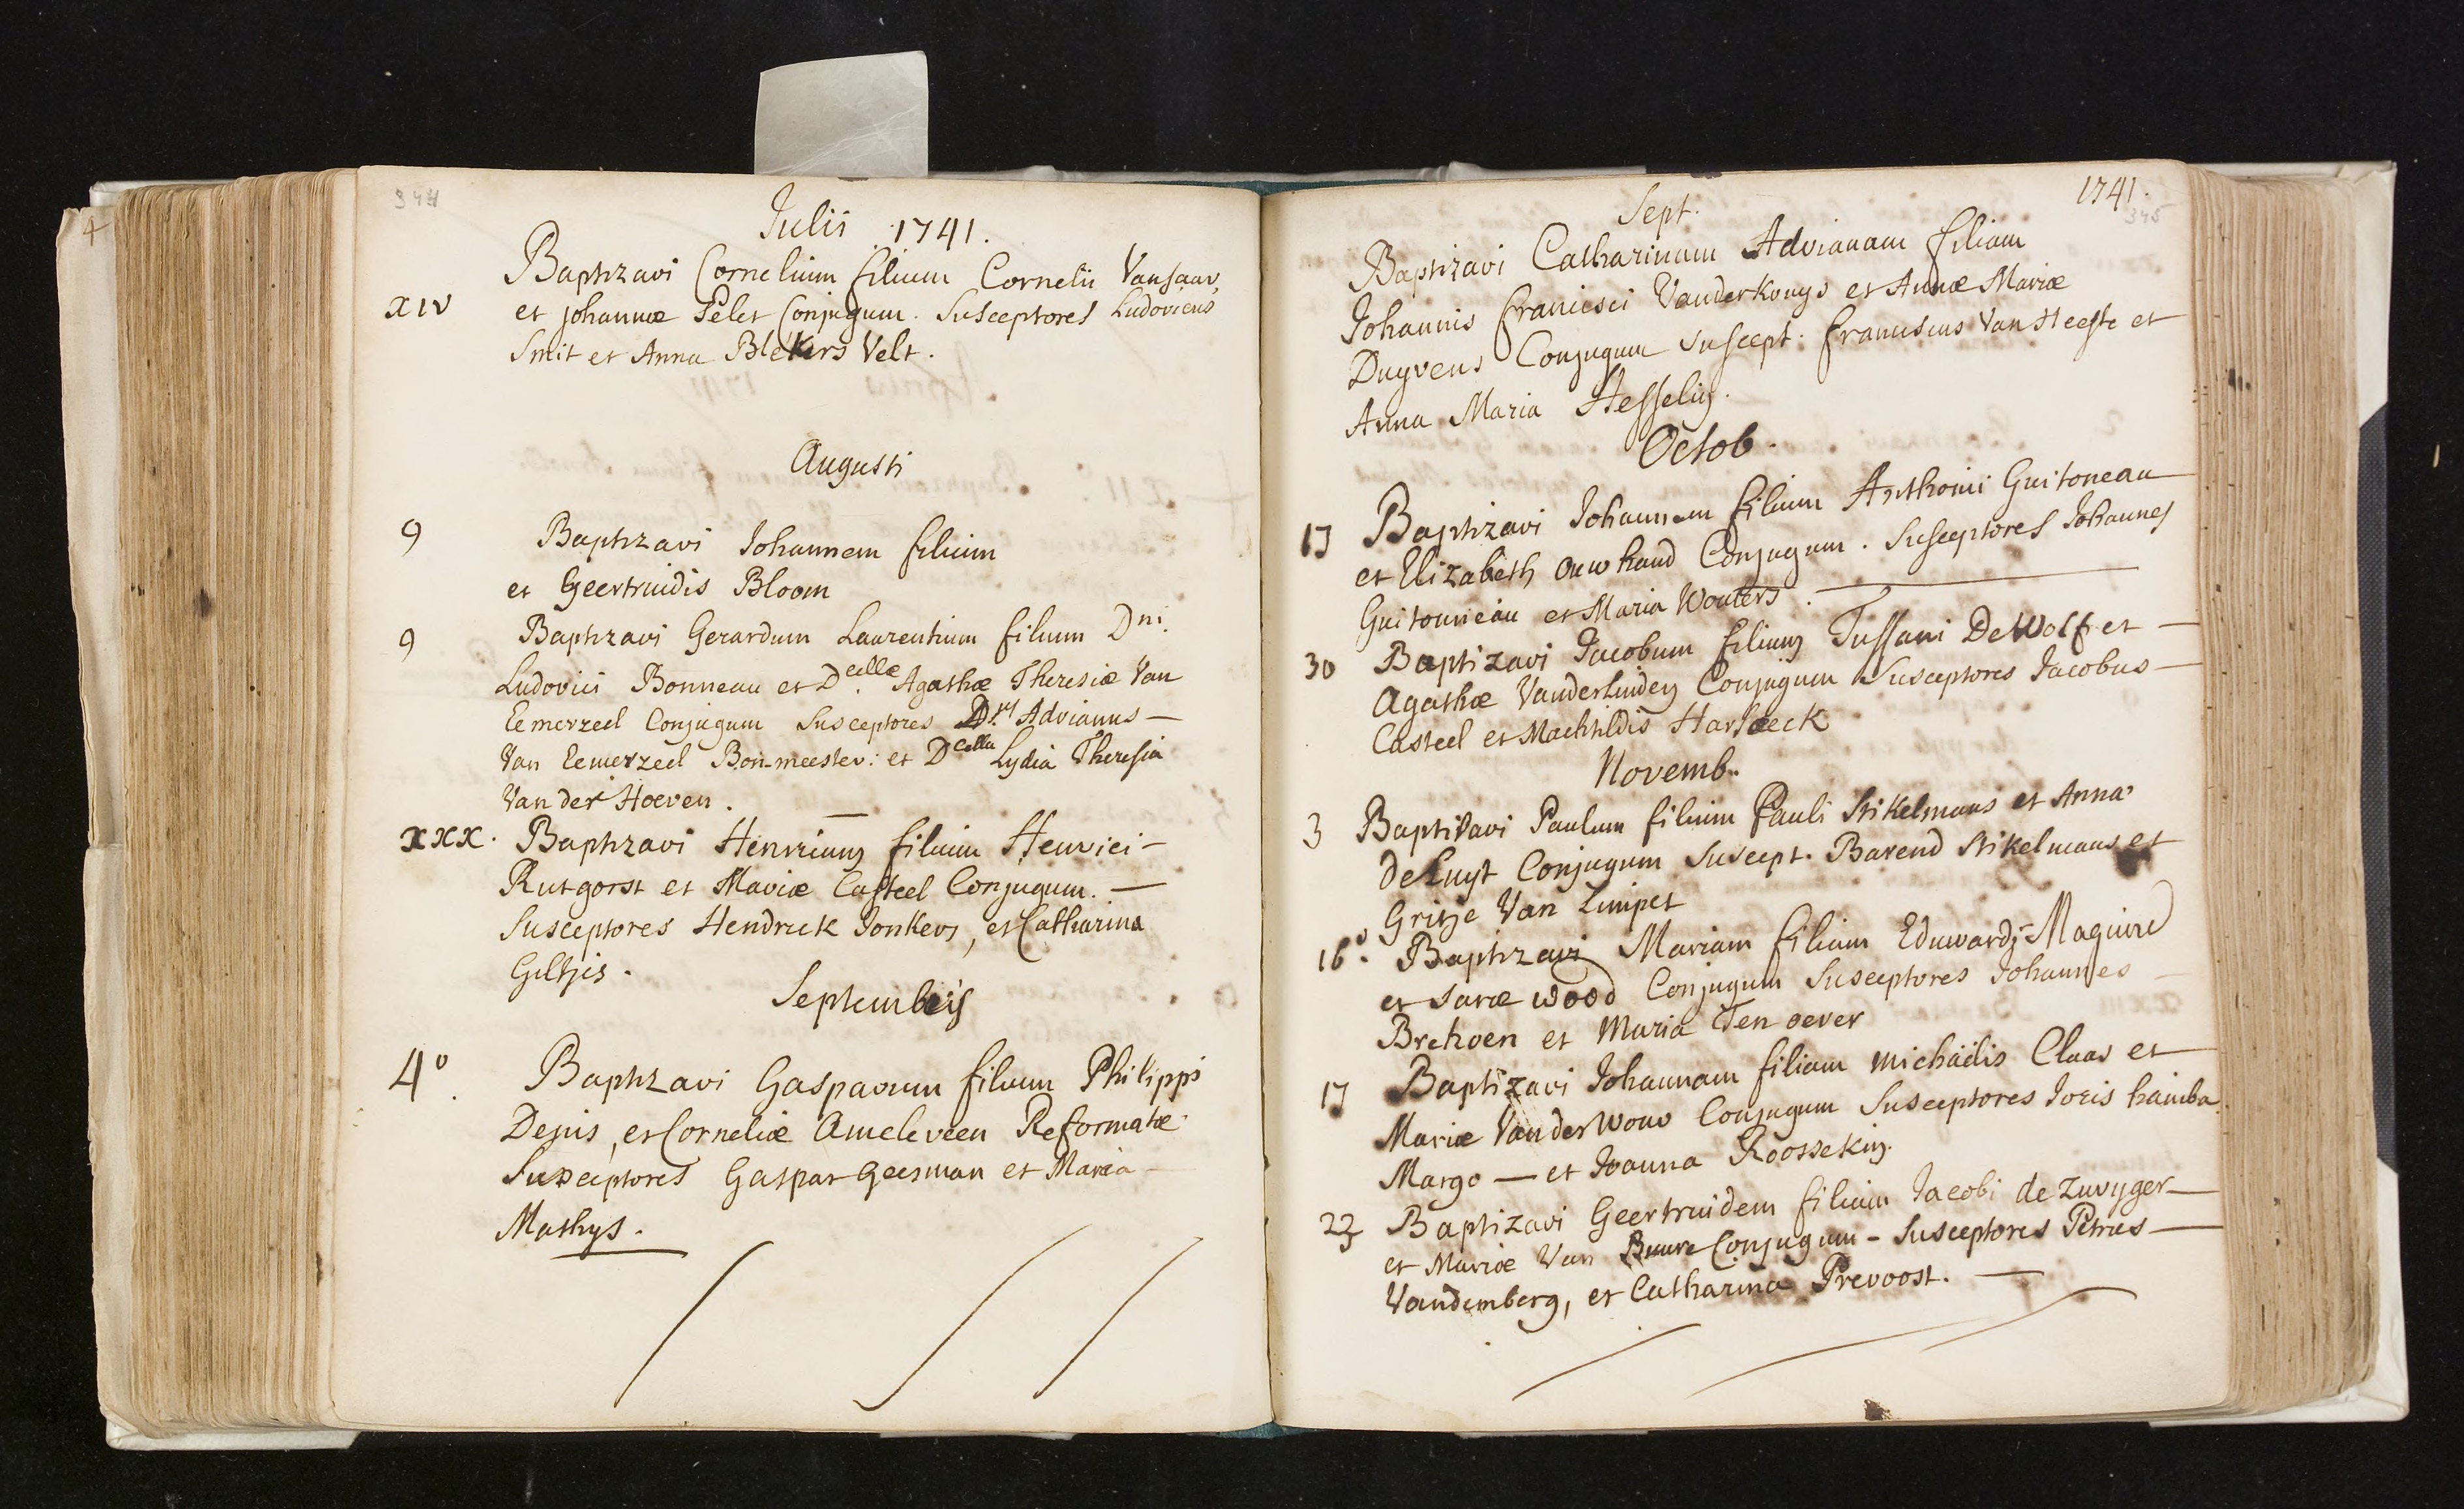 344
Julii 1741.
Baptizavi Cornelium filium Cornelii Vansaar,
XIV et Johannæ Pelet Conjugum. Susceptores Ludovicus
Smit et Anna Blekers Velt.
Augusti
9 Baptizavi Iohannem filium
et Geertruidis Bloom
9 Baptizavi Gerardum Laurentium filium Dni.
Ludovici Bonneau et Dcellæ Agathæ Theresiæ Van
Eemerzeel Conjugum Susceptores Adrianus —
Van Eemerzeel Bon-meester: et Dcella Lydia Theresia
Van der Hoeven. —
XXX. Baptizavi Henricum filium Henrici —
Rutgorst et Mariæ Casteel Conjugum. —
Susceptores Hendrick Jonkers, et Catharina
Giltjis.
Septembris
4º Baptizavi Gasparum filium Philippi
Denis, et Corneliæ Ameleveen Reformatæ
Susceptores Gaspar Geesman et Maria —
Mathys.
4
1741.
345
Sept.
Baptizavi Catharinam Adrianam filiam
Iohannis Francisci Vanderkonys et Annæ Mariæ
Duyvens Conjugum Suscept. Franciscus Van Heeste et
Anna Maria Hesselin.
Octob.
17 Baptizavi Iohannem filium Anthonii Guitoneau
et Elizabeth ouwhand Conjugum. Susceptores Iohannes
Guitonneau et Maria Wouters.
30 Baptizavi Iacobum filium Tussani De Wolf et —
Agathæ Vanderlinden Conjugum Susceptores Iacobus —
Casteel et Machtildis Harbeeck
Novemb.
3 Baptizavi Paulum filium Pauli Stikelmans et Anna
de Luyt Conjugum Suscept. Barend Stikelmans et
Gritje Van Limpet
16º. Baptizavi Mariam filiam Eduwardi Maguire
et Saræ Wood Conjugum Susceptores Iohannes —
Brehoen et Maria Ten oever
17 Baptizavi Iohannam filiam Michäelis Claas et
Mariæ Van der Wouw Conjugum Susceptores Joris
Margo — et Joanna Roossekin.
23 Baptizavi Geertruidem filiam Iacobi de Zuvyger —
et Mariæ Van Buure Conjugum - Susceptores Petrus —
Vandemberg, et Catharina Prevoost. —